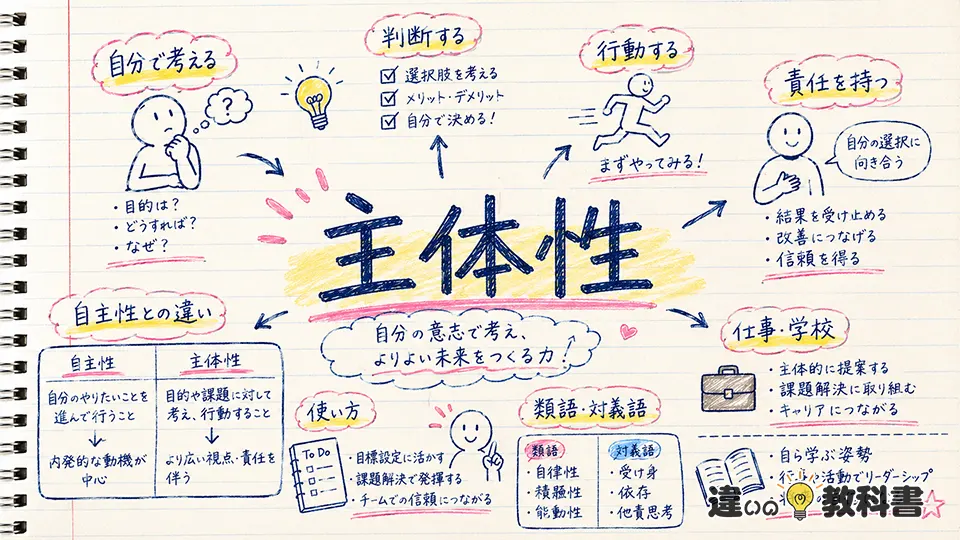 自分で考える
?
・目的は?
・どうすれば?
・なぜ?
判断する
選択肢を考える
メリット・デメリット
自分で決める!
行動する
まずやってみる!
責任を持つ
自分の選択に
向き合う
・結果を受け止める
・改善につなげる
・信頼を得る
主体性
自分の意志で考え、
よりよい未来をつくる力!
自主性との違い
自主性
主体性
自分のやりたいことを
進んで行うこと
目的や課題に対して
考え、行動すること
内発的な動機が
中心
より広い視点・責任を
伴う
使い方
To Do
・目標設定に活かす
・課題解決で発揮する
・チームでの信頼につながる
類語・対義語
類語
対義語
・自律性
・積極性
・能動性
・受け身
・依存
・他責思考
仕事・学校
・主体的に提案する
・課題解決に取り組む
・キャリアにつながる
・自ら学ぶ姿勢
活動でリーダーシップ
違いの教科書